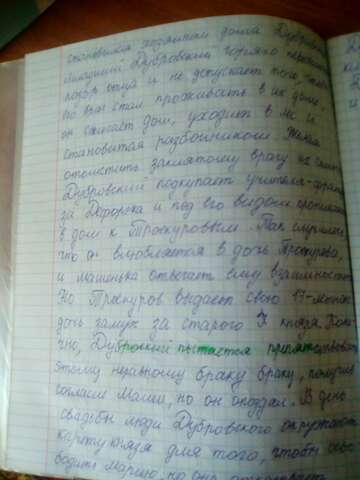 становится хозяином дома Дубровск
Младший Дубровский тяжело пережива
позор отца и не допускает того, чтобы
его враг стал проживать в их доме,
он сжигает дом, уходит в лес и
становится разбойником. Желая
отомстить заклятому врагу их семьи
Дубровский подкупает учителя-франц
за Дефоржа и под его видом проникает
в дом к Троекуровым. Так случилось,
что он влюбляется в дочь Троекурова,
и Машенька отвечает ему взаимностью
Но Троекуров выдает свою 17-летнюю
дочь замуж за старого князя
Дубровский пытается препятствовать
этому неравному браку браку, получив
согласие Маши, но он опоздал. В день
свадьбы люди Дубровского окружают
карету князя для того, чтобы осво
бодить Марию, но она отказывает